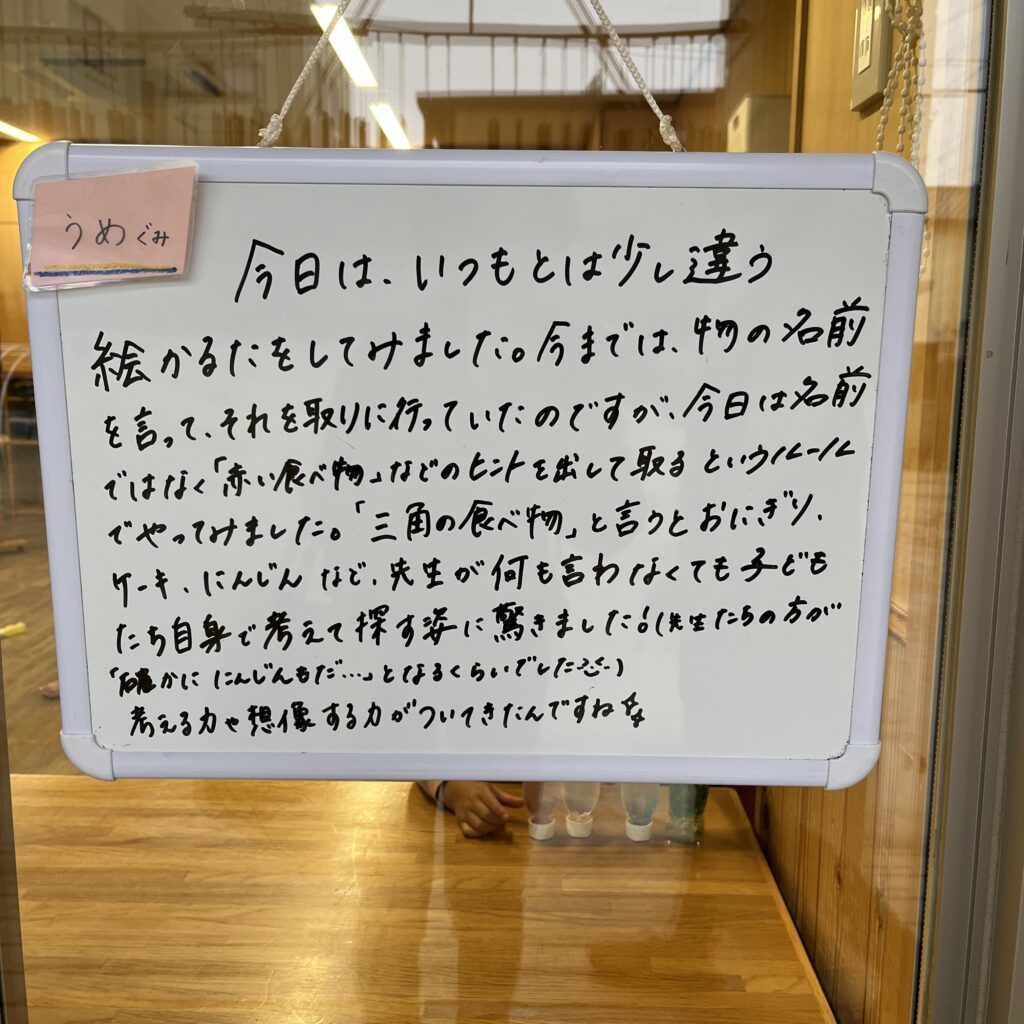 うめぐみ
今日は、いつもとは少し違う
絵かるたをしてみました。今までは、物の名前
を言って、それを取りに行っていたのですが、今日は名前
ではなく「赤い食べ物」などのヒントを出して取るというルール
でやってみました。「三角の食べ物」と言うとおにぎり、
ケーキ、にんじんなど、先生が何も言わなくても子ども
たち自身で考えて探す姿に驚きました!(先生たちの方が
「確かににんじんもだ…」となるくらいでした)
考える力や想像する力がついてきたんですね